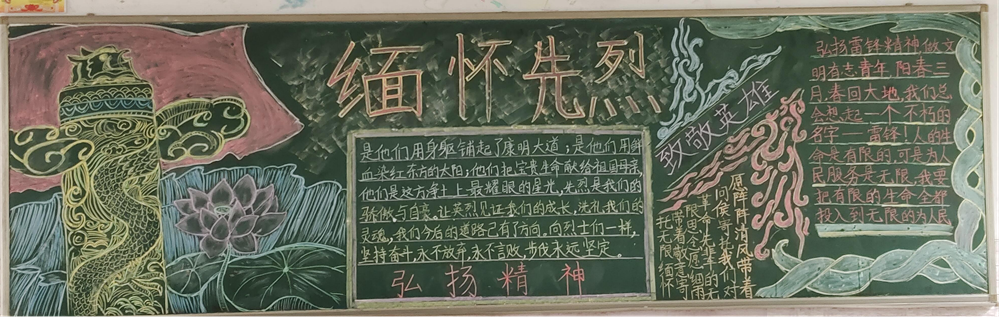 缅怀先烈
是他们用身躯铺起了康明大道;是他们用鲜
血染红东方的太阳;他们把宝贵生命献给祖国母亲,
他们是这方净土上最耀眼的星光,先烈是我们的
骄傲与自豪,让英烈见证我们的成长,洗礼我们的
灵魂,我们今后的道路已有了方向,向烈士们一样,
坚持奋斗永不放弃,永不言败,步伐永远坚定。
弘扬精神
致敬英雄
愿阵阵清风带着
问候寄托我们对
革命先辈的无
限思念愿细雨
带着敬意寄
托无限缅怀
弘扬雷锋精神做文
明有志青年,阳春三
月春回大地,我们总
会想起一个不朽的
名字—雷锋!人的生
命是有限的,可是为人
民服务是无限,我要
把有限的生命全都
投入到无限的为人民